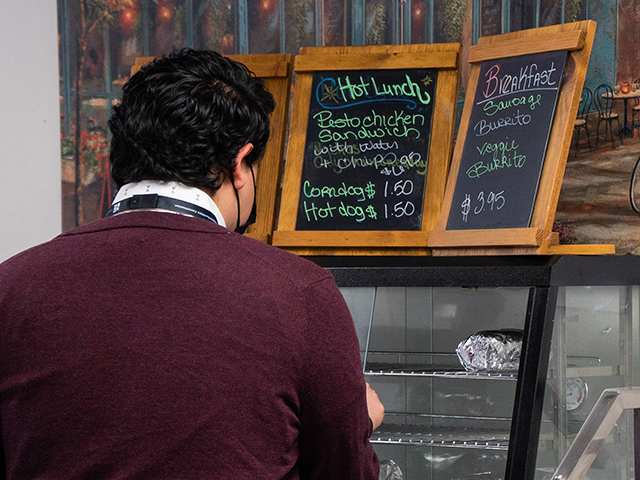 Hot Lunch
Pesto chicken
Sandwich
with
Corndog $ 1.50
Hot dog $ 1.50
Breakfast
Sausage
Burrito
veggie
Burrito
$ 3.95